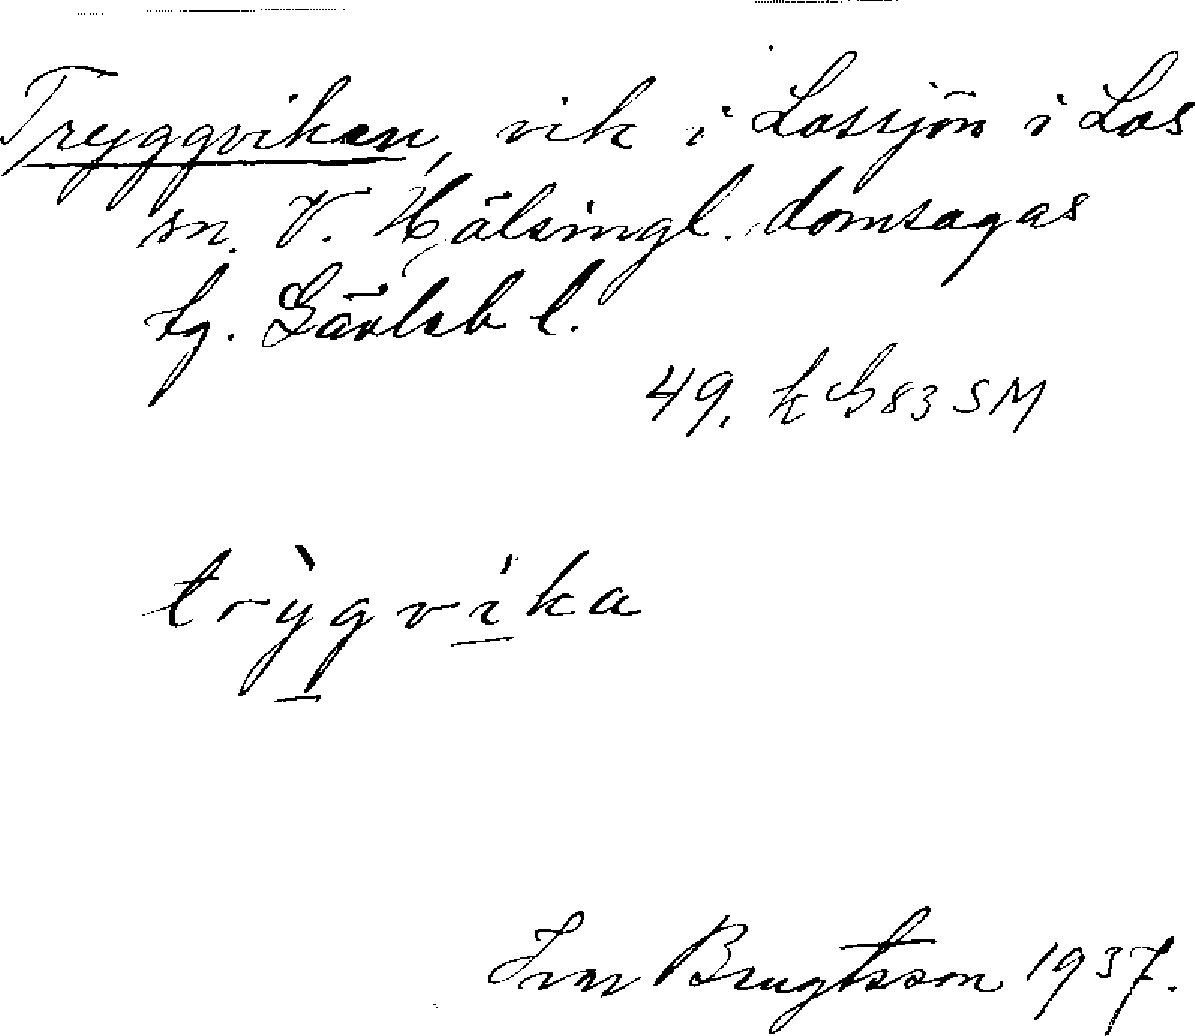 Tryggviken, vik i Lossjön i Los
sn. V. Hälsingl. domsagas
tg. Gävleb l.
49. k G 83 SM
trỳgvi̍ka
Ivar Bengtsson 1937.